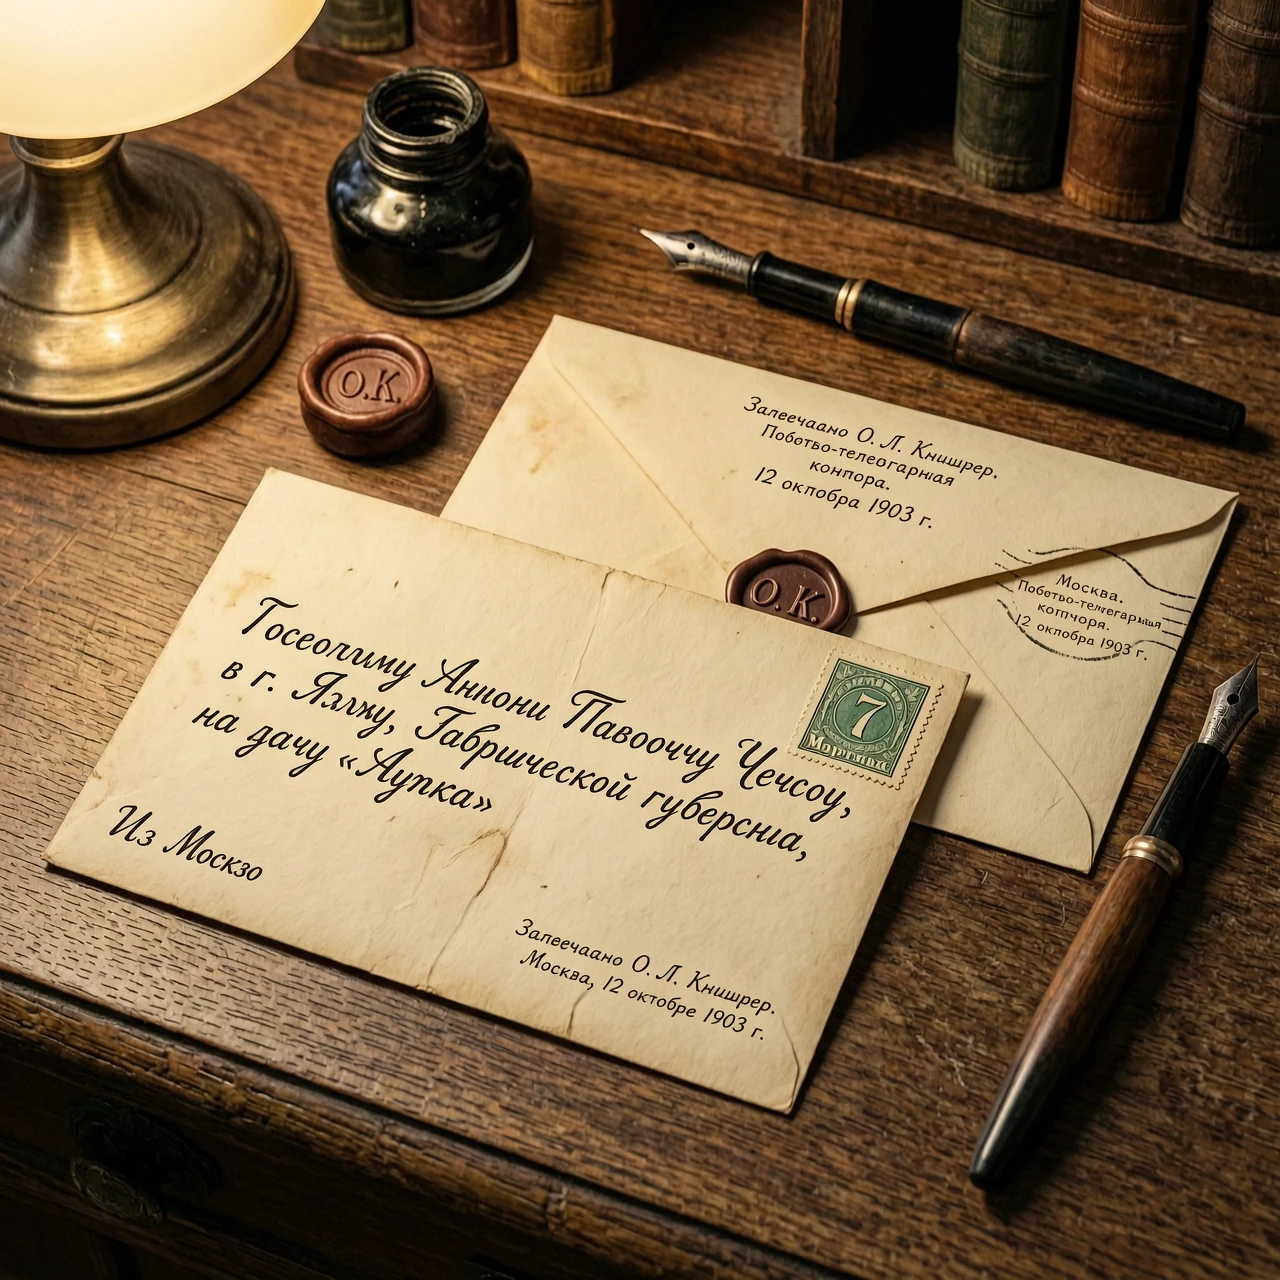 О.К.
Залеечаано О. Л. Книшрер.
Поботво-телеогарния
конпора.
12 окпобра 1903 г.
О.К.
Москва.
Поботво-телегарния
котчоря.
12 окпобра 1903 г.
7
Госеопиму Анпони Павооччу Чечсоу,
в г. Ялжу, Габрической губерсниа,
на дачу «Аупка»
Из Москзо
Залеечаано О. Л. Книшрер.
Москва, 12 октобре 1903 г.